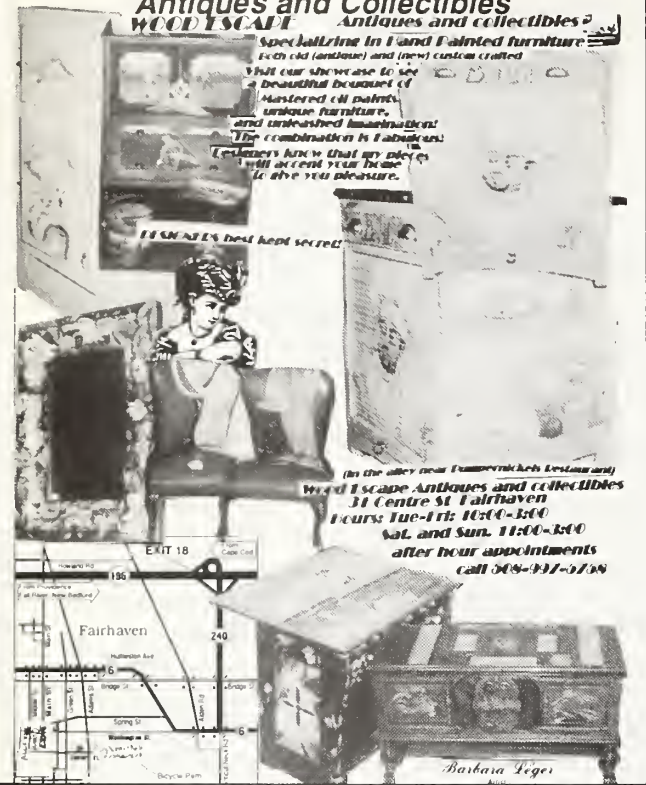 Antiques and Collectibles
WOOD ESCAPE Antiques and collectibles
Specializing in Hand Painted furniture
Both old (antique) and (new) custom crafted
Visit our showcase to see
a beautiful bouquet of
Mastered oil paints,
unique furniture,
and unleashed imagination!
The combination is Fabulous!
Designers know that my pieces
will accent your home
to give you pleasure.
DESIGNERS best kept secret!
(In the alley near Pumpernickels Restaurant)
Wood Escape Antiques and collectibles
31 Centre St. Fairhaven
Hours: Tue-Fri: 10:00-3:00
Sat. and Sun. 11:00-3:00
after hour appointments
call 508-997-5758
EXIT 18
From
Cape Cod
Howland Rd
195
From Providence
Fall River, New Bedford
Fairhaven
240
Huttleston Ave
6
Bridge St
Bridge St
Main St
Green St
Adams St
Alden Rd
Spring St
6
Washington St
Bicycle Path
Barbara Leger
Artist